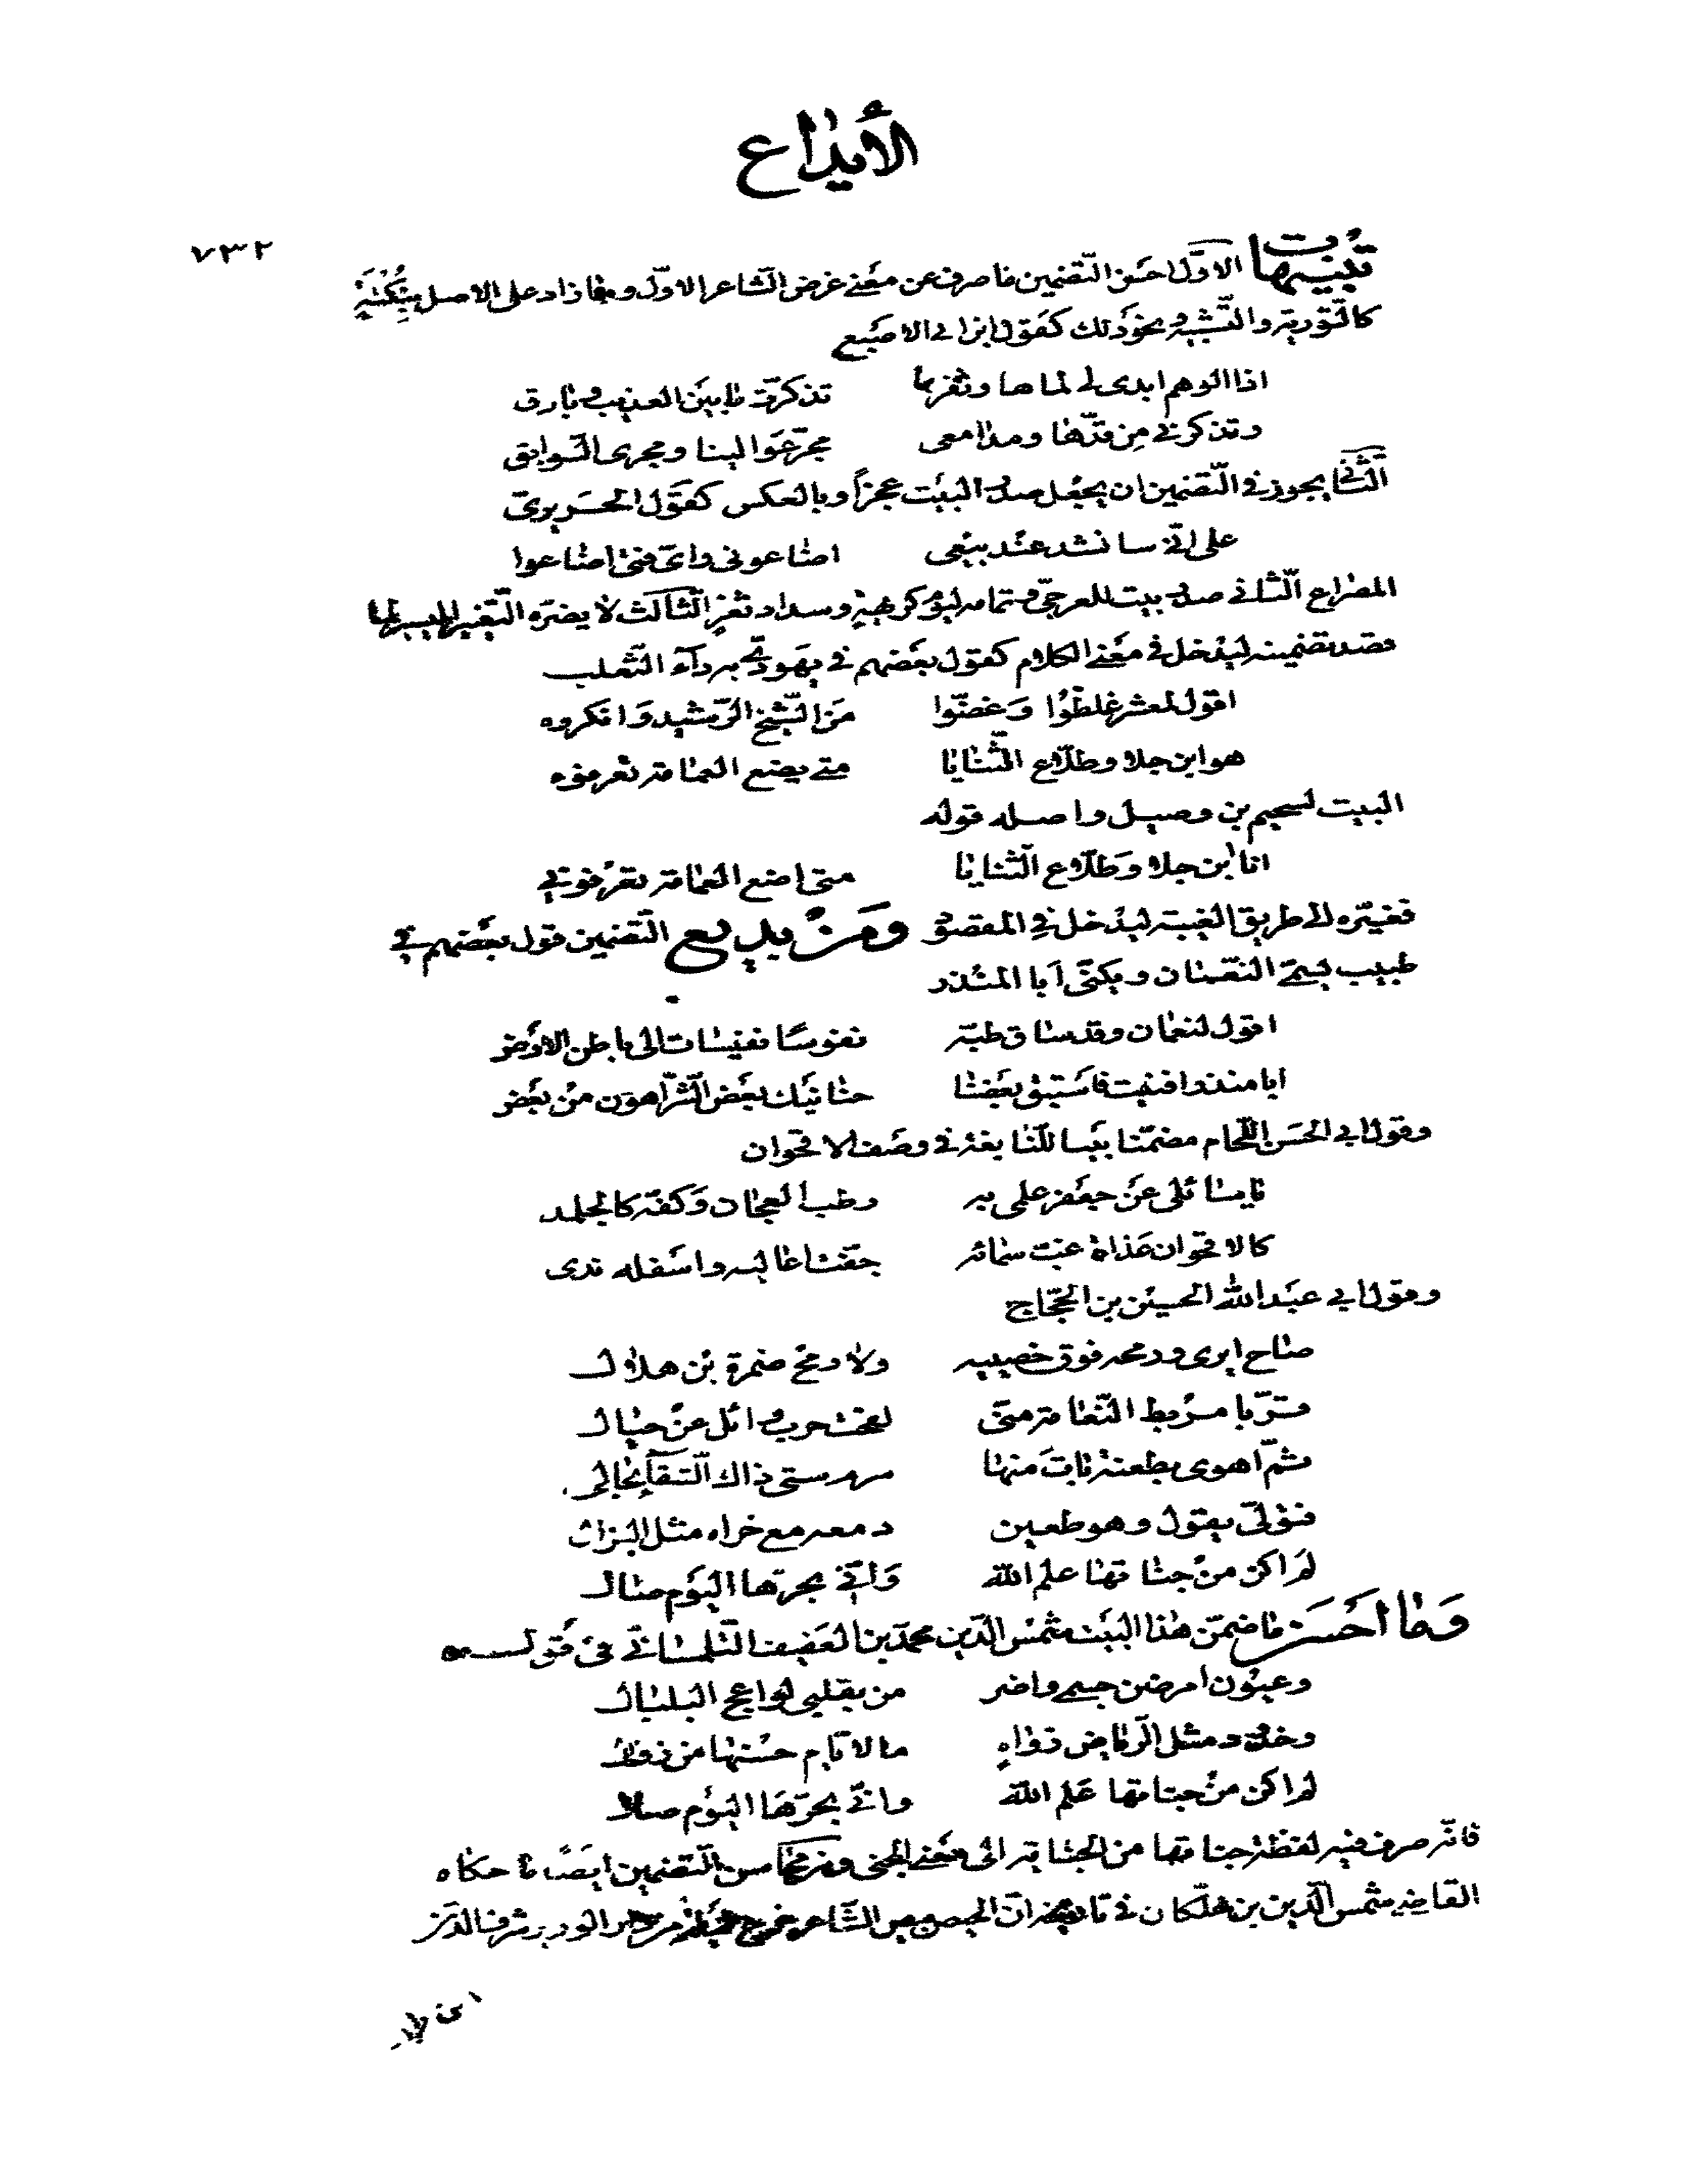 الأيداع
٧٣٢
تنبيهات الاوّل احسن التّضمين ما صرف عن معنى غرض الشّاعر الاوّل وما زاد على الاصل بنكتة
كالتّورية والتّشبيه ونحو ذلك كقول ابن ابي الاصبع
اذا الوهم ابدى لي لماها وثغرها تذكرّت ما بين العذيب وبارق
وتذكرني من قدّها ومدامعي مجرّ عوالينا ومجرى السّوابق
الثّاني يجوز في التّضمين ان يجعل صدر البيت عجزاً وبالعكس كقول الحريري
على انّي سانشد عند بيعي اضاعوني واي فتى اضاعوا
المصراع الثّاني صدر بيت للعرجيّ وتمامه ليوم كريهة وسداد ثغر الثّالث لا يضرّه التّغيير اليسير لما
قصد تضمينه ليدخل في معنى الكلام كقول بعضهم في يهوديّ به داء الثّعلب
اقول لمعشر غلطوا وغضّوا من الشّيخ الرّشيد وانكروه
هو ابن جلا وطلّاع الثّنايا متى يضع العمامة تعرفوه
البيت لسحيم بن وصيل واصله قوله
انا ابن جلا وطلّاع الثّنايا متى اضع العمامة تعرفوني
فغيّره الى طريق الغيبة ليدخل في المقصود ومن بديع التّضمين قول بعضهم في
طبيب يسمّى النعمان ويكنّى ابا المنذر
اقول لنعمان وقد ساق طبّه نفوسًا نفيسات الى باطن الارض
ابا منذر افنيت فاستبق بعضنا حنانيك بعض الشّرّ اهون من بعض
وقول ابي الحسن اللّحام مضمّنا بيتا للنّابغة في وصف الاقحوان
يا سائلي عن جعفر علمي به رطب العجان وكفّه كالجلمد
كالاقحوان غداة غبّ سمائه جفّت اعاليه واسفله ندى
وقول ابي عبد الله الحسين بن الحجّاج
صاح ايري ودرمحه فوق خصييه ولا رمح ضمرة بن هلال
قرّبا مربط النّعامة منّي لقحت حرب وائل عن حيال
ثمّ اهوى بطعنة نابت منها
فتولّى يقول وهو طعين دمعه مع خراه مثل البزال
لم اكن من جناتها علم الله وانّي بحرّها اليوم صال
وما احسن ما ضمّن هذا البيت شمس الدّين محمّد بن العفيف التّلمساني في قوله
وعيون امرضن جسمي واضر من بقلبي لواعج البلبال
وخدود مثل الرّياض زواهٍ ما لايّام حسنها من زوال
لم اكن من جناتها علم الله وانّي بحرّها اليوم صال
فانّه صرف فيه لفظة جناتها من الجناية الى معنى الجنى ومن محاسن التّضمين ايضًا ما حكاه
القاضي شمس الدّين بن خلّكان في تاريخه انّ الحيص بيص الشّاعر خرج ليلة من دار الوزير شرف الدّين